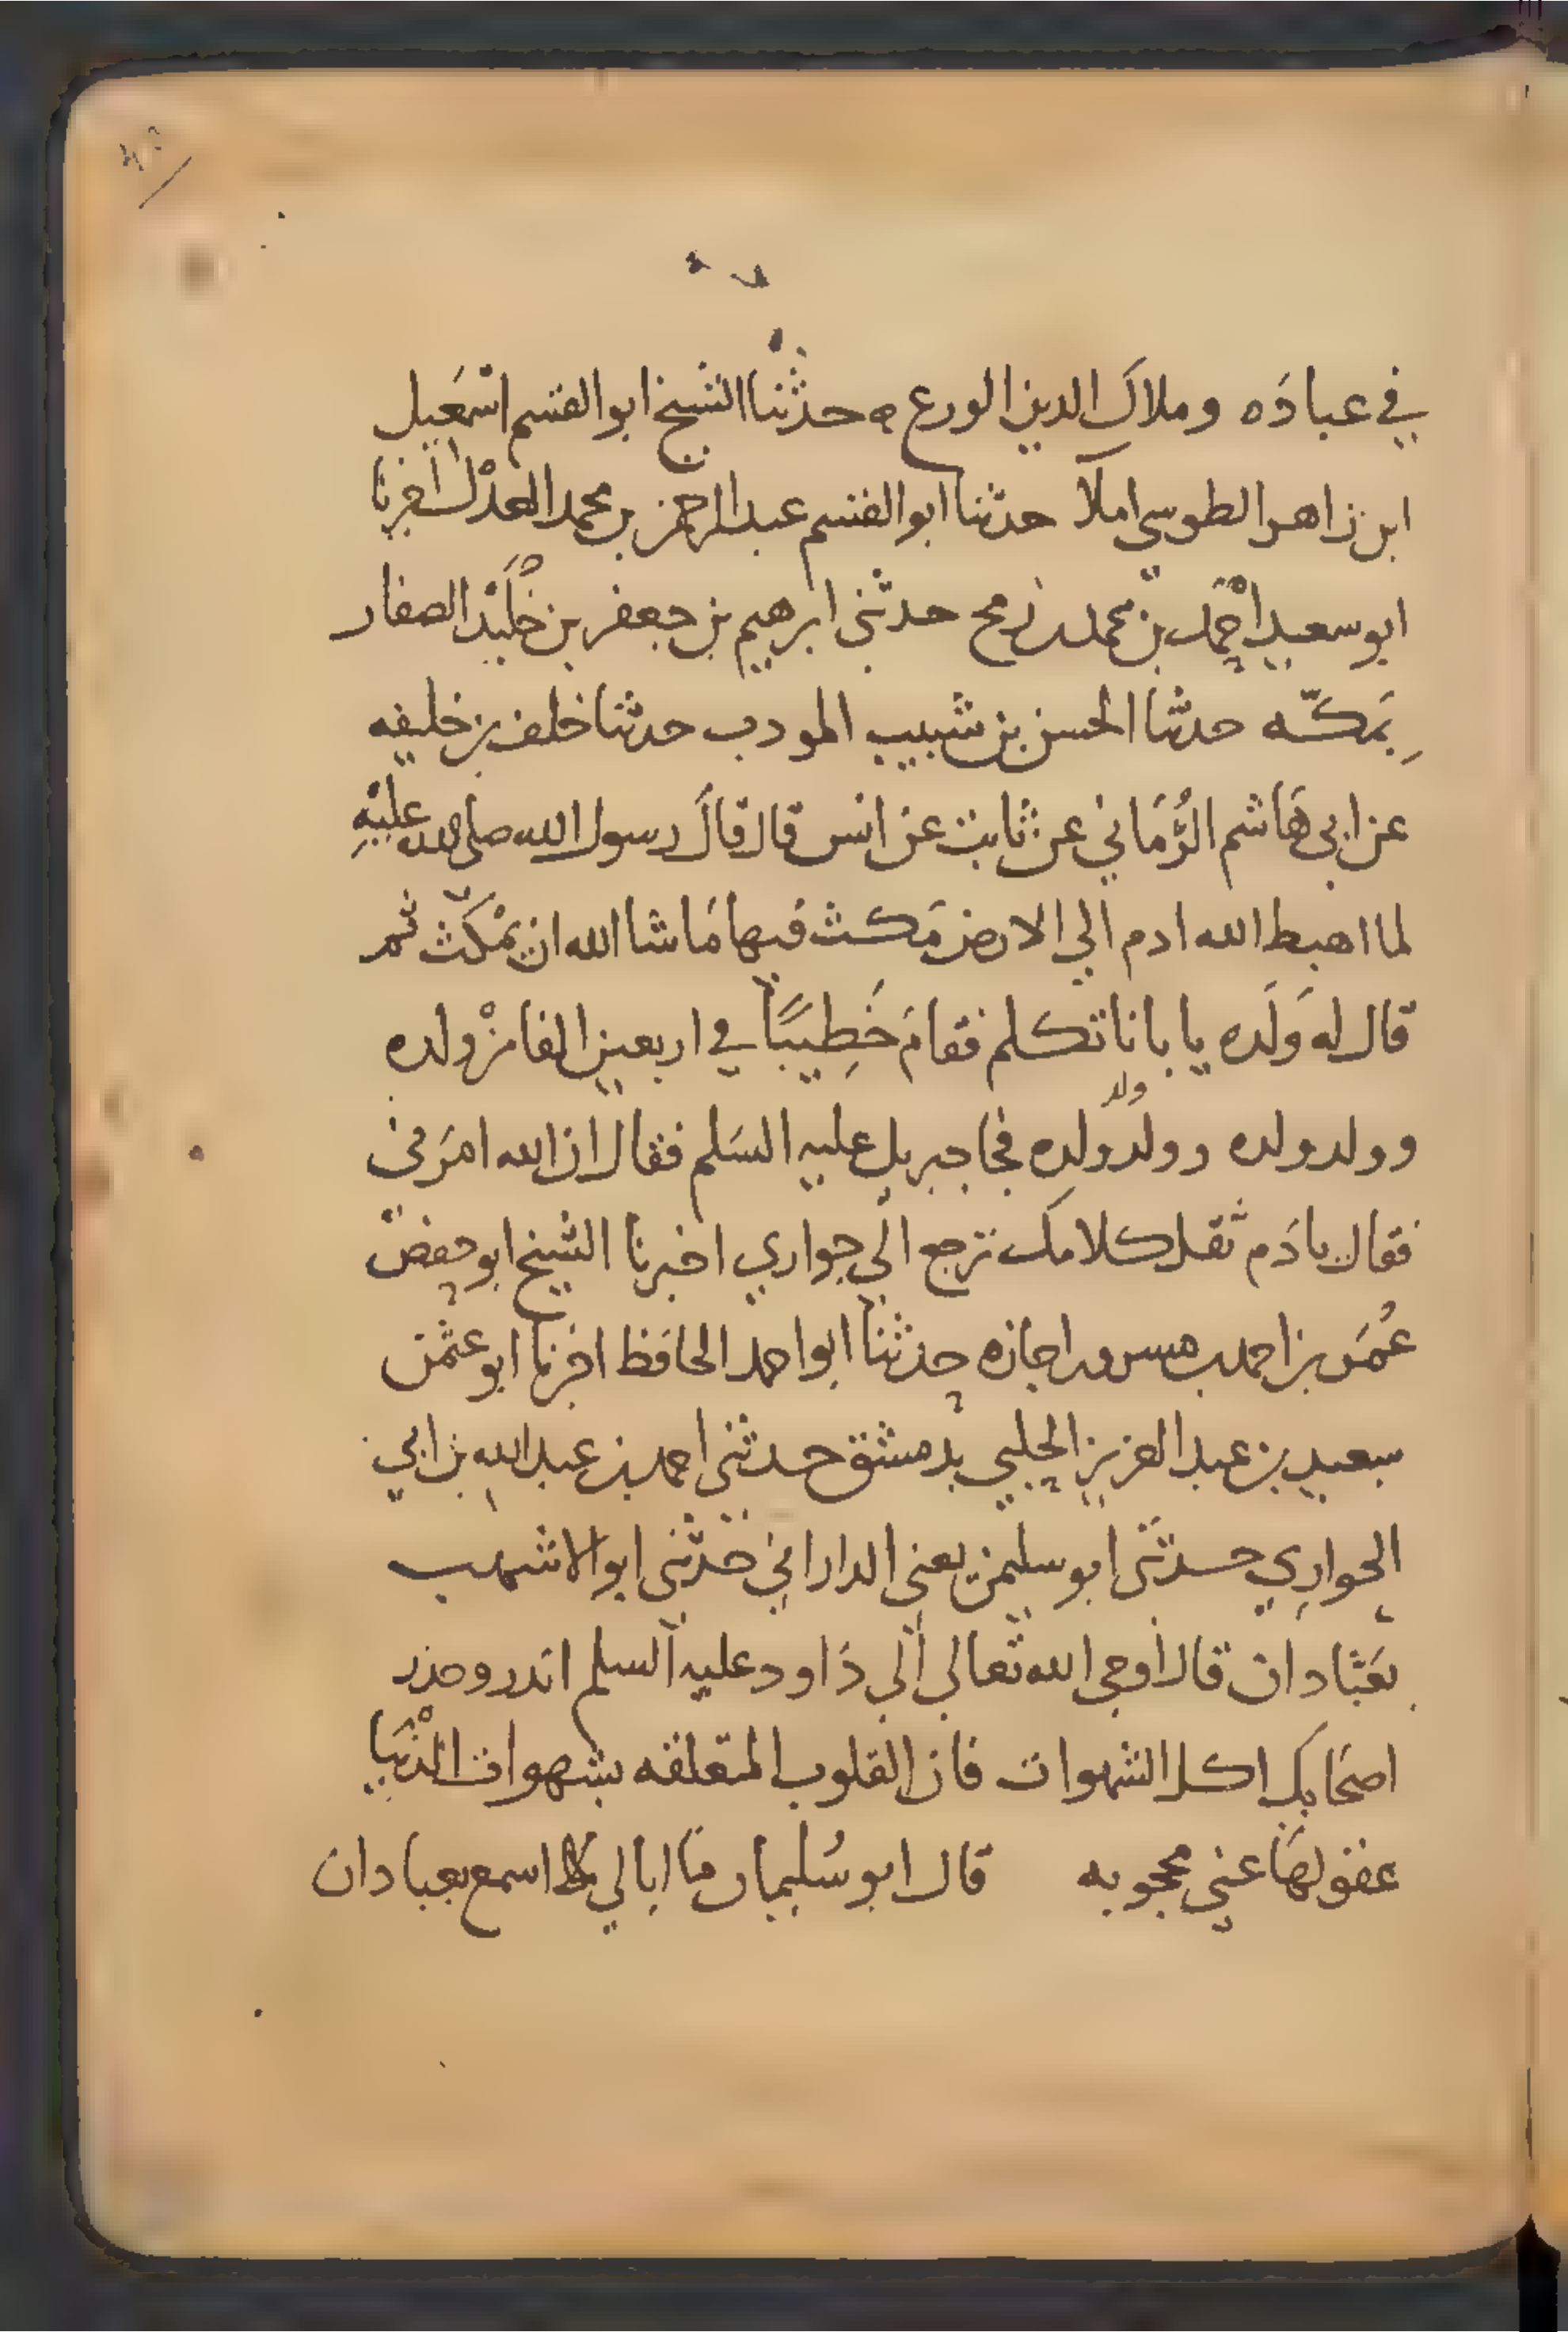 في عبادَه وملاكَ الدين الورع ه حدثنا الشيخ ابو القسم اسْمَعيل
ابن زاهر الطوسي املآ حدثنا ابو القسم عبد الرحمن بن محمد العدْل اخبرنا
ابو سعيد احْمَد بن محمد بن رميح حدثني ابرهيم بن جعفر بن خُلَيْد الصفار
بمَكّه حدثنا الحسن بن شبيب المودب حدثنا خلف بن خليفه
عن ابي هَاشم الرُّمَاني عن ثابت عن انس قال قالَ رسول الله صلى الله عليْهِ
لما اهبط الله ادم الي الارض مَكث فيها مَا شا الله ان يمْكَث ثم
قال له وَلَده يا بانا تكلم فقامَ خَطِيبًا في اربعين الفا منْ ولده
ولد
وولد ولده وولد ولدِه فجا جبريل عليه السَلم فقال ان الله امرَني
فقال يادَم ثقل كلامك ترجع الي جواري اخبرنا الشيخ ابو حفص
عُمَر بن احمد بن مسرور اجازه حدثنا ابو احمد الحافظ اخبرنا ابو عثمن
سعيد بن عبد العزيز الحلبي بدمشق حدثني احمد بن عبد الله بن ابي
الحوارِي حدثني ابو سليمن يعني الداراني حدثني ابو الاشهب
بعَبّادان قال اوحي الله تعالي الي دَاود عليه السلم انذر وحذر
اصحَابك اكل الشهوات فان القلوب المتعلقه بشهوات الدُنْيَا
عقولهَا عني محجوبه قال ابو سُليمان مَا ابالي اسمع بعبادان